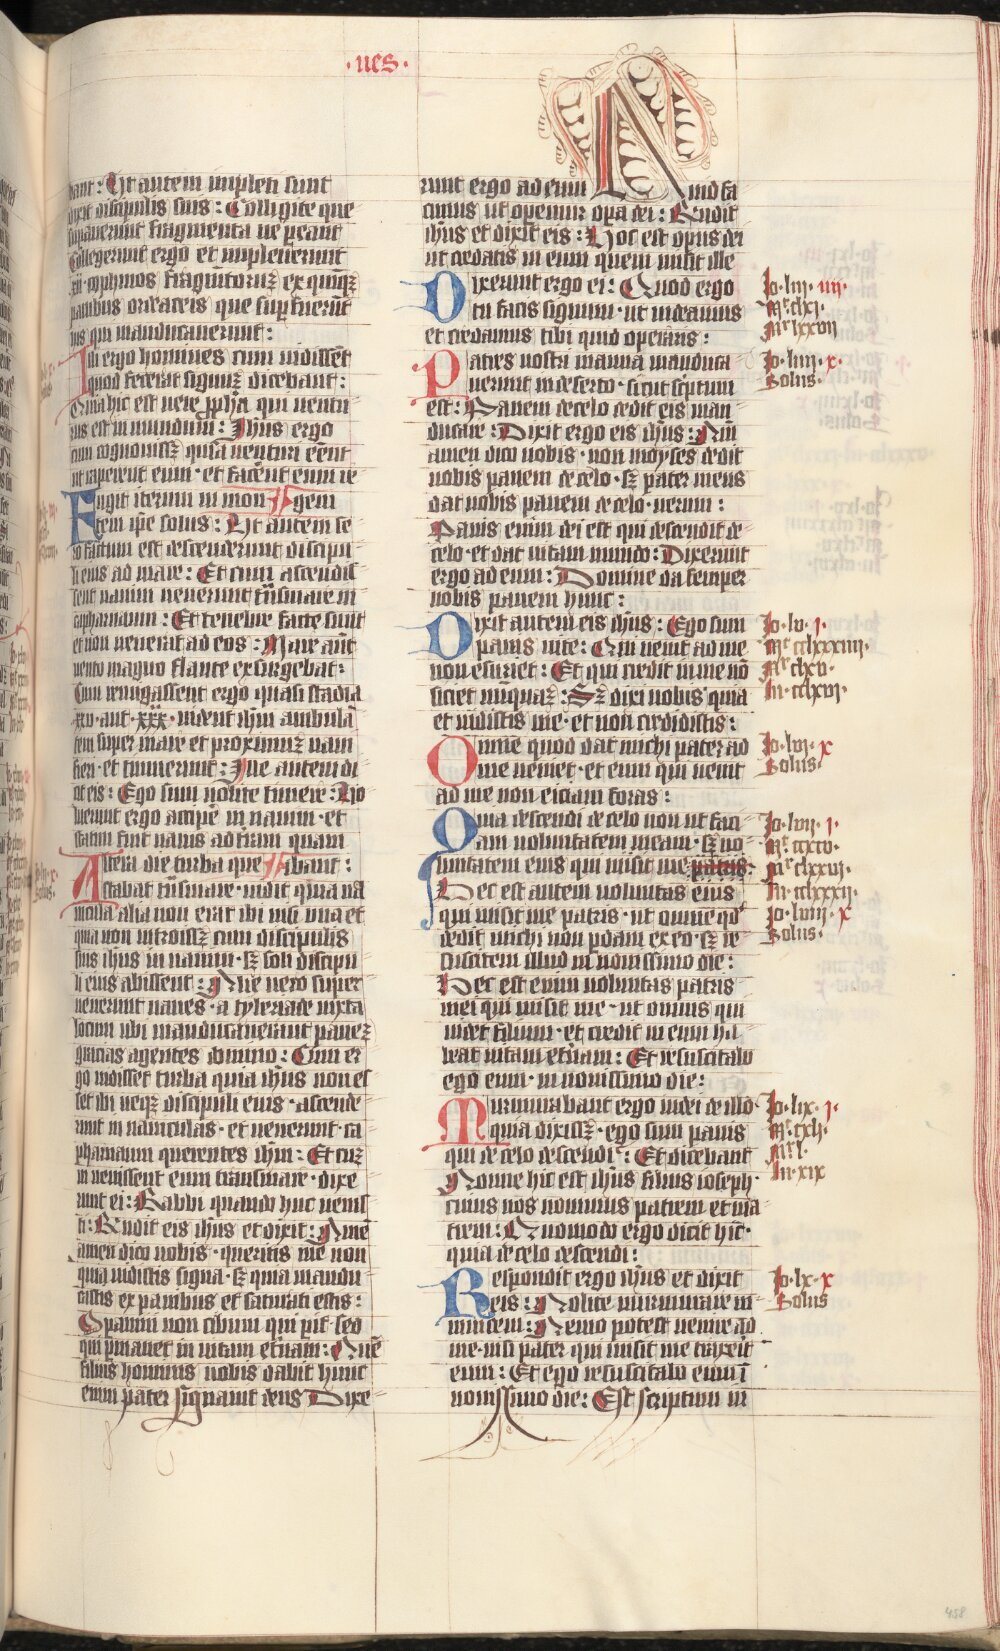 ·nes·
bant: Ut autem impleti sunt
dixit discipulis suis: Colligite que
supauerunt fragmenta ne peant
Collegerunt ergo et impleuerunt
xii cophinos fragmtoruz ex quīqz
panibus ordeaceis que supfuerūt
his qui manducauerunt:
Illi ergo homines cum uidissēt
quod fecerat signuz dicebant:
Quia hic est uere ppha qui uentu
rus est in mundum: Ihus ergo
cum cognouissz quia uenturi eēnt
ut raperent eum · et facēnt eum re
Fugit iterum in mon gem
tem ipse solus: Ut autem se
ro factum est descenderunt discipu
li eius ad mare: Et cum ascendis
sent nauim uenerunt trāsmare in
capharnaum: Et tenebre facte sunt
et non uenerat ad eos: Mare aūt
uento magno flante exsurgebat:
Cum remigassent ergo quasi stadia
xxv · aut · xxx · uident ihm ambulā
tem super mare et proximuz naui
fieri · et timuerunt: Ille autem di
cit eis: Ego sum nolite timere: Uo
luerunt ergo accipe in nauim · et
statim fuit nauis ad trram quam
Altera die turba que ibant:
stabat trāsmare · uidit quia na
uicula alia non erat ibi nisi una et
quia non introissz cum discipulis
suis ihus in nauim · sz soli discipu
li eius abissent: Alie uero super
uenerunt naues · a tyberiade iuxta
locum ubi manducauerant panez
gracias agentes domino: Cum er
go uidisset turba quia ihus non es
set ibi neqz discipuli eius · ascende
runt in nauiculas · et uenerunt · ca
pharnaum querentes ihm: Et cuz
inuenissent eum transmare · dixe
runt ei: Rabbi quando huc uenis
ti: Rndit eis ihus et dixit: Amē
amen dico uobis · queritis me non
quia uidistis signa · sz quia mandu
castis ex panibus et saturati estis:
Opamini non cibum qui pit · sed
qui pmanet in uitam etnam: Quē
filius hominis uobis dabit hunc
enim pater signauit deus Dixe
runt ergo ad eum Quid fa
cimus ut opemur opa dei: Rndit
ihus et dixit eis: Hoc est opus dei
ut credatis in eum quem misit ille
Dixerunt ergo ei: Quod ergo
tu facis signum · ut uideamus
et credamus tibi quid operaris:
Patres nostri manna manduca
uerunt in deserto · sicut scptum
est: Panem de celo dedit eis man
ducare: Dixit ergo eis ihus: Am
amen dico uobis · non moyses dedit
uobis panem de celo · sz pater meus
dat uobis panem de celo · uerum:
Panis enim dei est qui descendit de
celo · et dat uitam mundo: Dixerunt
ergo ad eum: Domine da semper
nobis panem hunc:
Dixit autem eis ihus: Ego sum
panis uite: Qui uenit ad me
non esuriet: Et qui credit in me nō
sitiet unquaz: Sz dixi uobis quia
et uidistis me · et non credidistis:
Omne quod dat michi pater ad
me ueniet · et eum qui uenit
ad me non eiciam foras:
Quia descendi de celo non ut faci
am uoluntatem meam · sz uo
luntatem eius qui misit me patris
Hec est autem uoluntas eius
qui misit me patris · ut omne qd
dedit michi non pdam ex eo · sz re
suscitem illud in nouissimo die:
Hec est enim uoluntas patris
mei qui misit me · ut omnis qui
uidet filium · et credit in eum ha
beat uitam etnam: Et resuscitabo
ego eum · in nouissimo die:
Murmurabant ergo iudei de illo
quia dixissz · ego sum panis
qui de celo descendi: Et dicebant
Nonne hic est ihus filius ioseph ·
cuius nos nouimus patrem et ma
trem: Quomodo ergo dicit hic ·
quia de celo descendi:
Respondit ergo ihus et dixit
eis: Nolite murmurare in
inuicem: Nemo potest uenire ad
me · nisi pater qui misit me traxerit
eum: Et ego resuscitabo eum ī
nouissimo die: Est scriptum in
Io · liii · iiii ·
Mr clxi ·
Mr lxxvii
Io · liiii · x ·
Solus ·
Io · lv · i ·
Mr cclxxxiiii ·
Mr clxv ·
In · cclxvi ·
Io · lvi · x
Solus ·
Io · lvii · i ·
Mt ccxcv ·
Mr clxxvi ·
In · cclxxxii ·
Io · lviii · x
Solus ·
Io · lix · i ·
Mt cxli ·
Mr l ·
In · xix
Io · lx · x
Solus
458